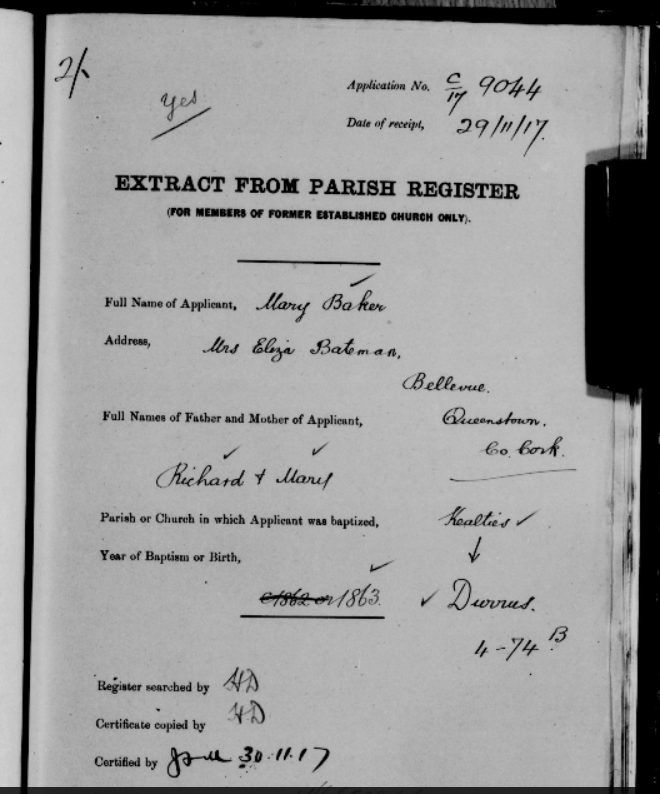 2/-
yes
Application No. C/17 9044
Date of receipt, 29/11/17.
EXTRACT FROM PARISH REGISTER
(FOR MEMBERS OF FORMER ESTABLISHED CHURCH ONLY).
Full Name of Applicant, Mary Baker
Address, Mrs Eliza Bateman,
Bellevue.
Full Names of Father and Mother of Applicant, Queenstown.
Co. Cork.
Richard & Mary
Parish or Church in which Applicant was baptized, Kealties
Year of Baptism or Birth,
c1862 or 1863. Durrus.
4-74 B
Register searched by HD
Certificate copied by HD
Certified by 30.11.17